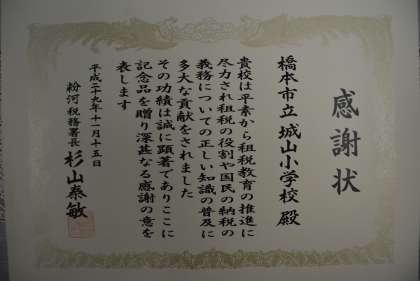 感謝状
橋本市立 城山小学校 殿
貴校は平素から租税教育の推進に
尽力され租税の役割や国民の納税の
義務についての正しい知識の普及に
多大な貢献をされました
その功績は誠に顕著でありここに
記念品を贈り深甚なる感謝の意を
表します
平成二十九年十一月十五日
粉河税務署長 杉山泰敏